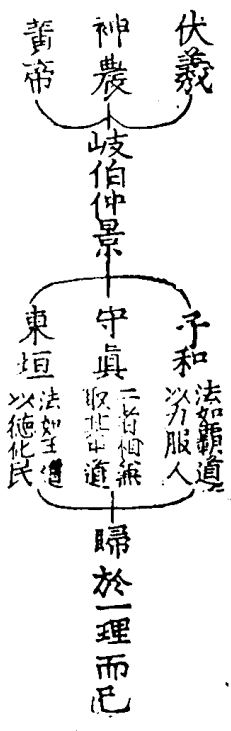 伏羲
神農
黃帝
岐伯仲景
子和
法如霸道
以力服人
守眞
二者相兼
取其中道
東垣
法如王道
以德化民
歸於一理而已